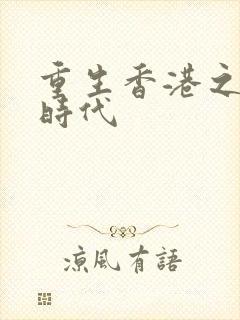 重生香港之
時代
涼風有語